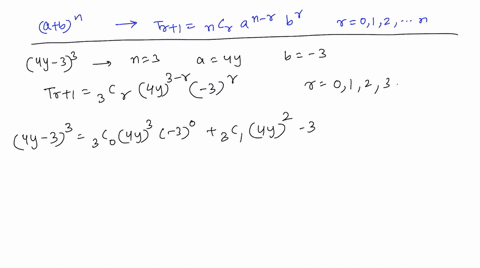 (a+b)^n → T_{r+1} = nC_r a^{n-r} b^r r=0,1,2,... n
(4y-3)^3 → n=3 a=4y b=-3
T_{r+1} = 3C_r (4y)^{3-r} (-3)^r r=0,1,2,3.
(4y-3)^3 = 3C_0 (4y)^3 (-3)^0 + 3C_1 (4y)^2 -3